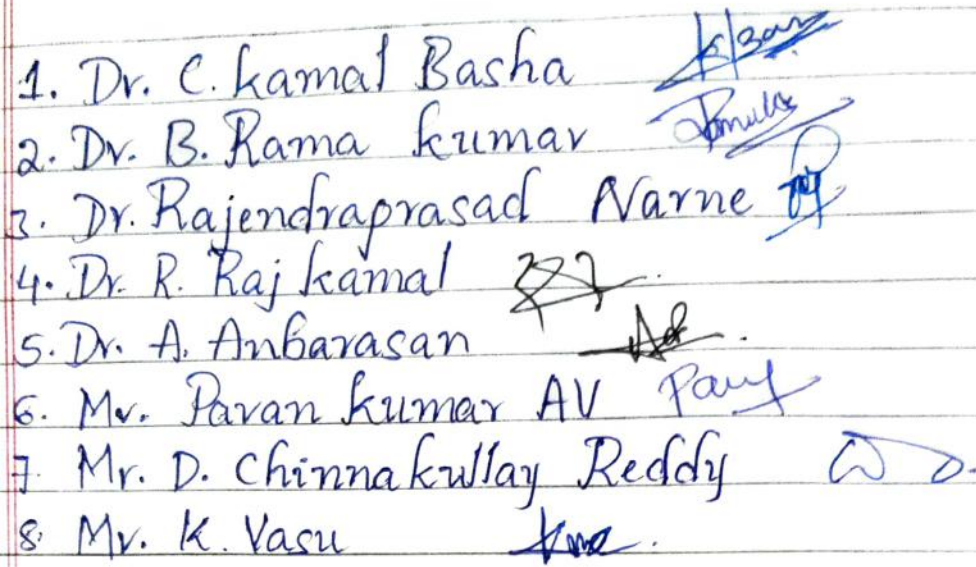 1. Dr. C. Kamal Basha
2. Dr. B. Rama Kumar
3. Dr. Rajendraprasad Narne
4. Dr. R. Raj Kamal
5. Dr. A. Anbarasan
6. Mr. Pavan Kumar AV
7. Mr. D. Chinnakullay Reddy
8. Mr. K. Vasu